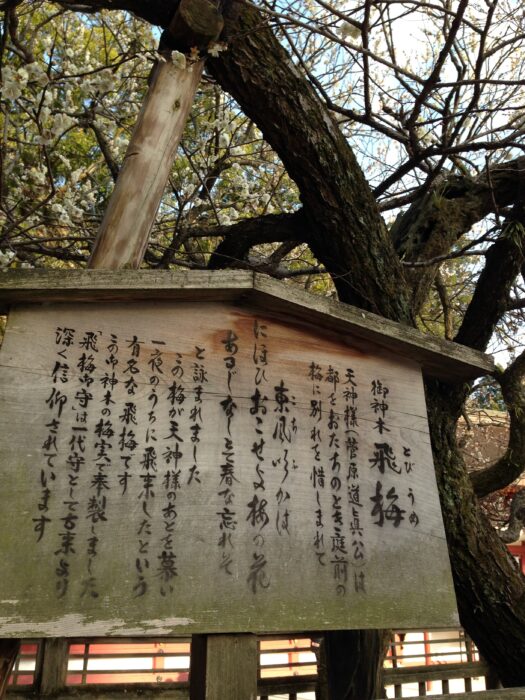 とびうめ
御神木 飛梅
天神様(菅原道真公)は
都をおたちのとき庭前の
梅に別れを惜しまれて
こちふ
東風吹かは
にほひおこせよ梅の花
あるじなしとて春な忘れそ
と詠まれました
この梅が天神様のあとを慕い
一夜のうちに飛来したという
有名な飛梅です
この御神木の梅実で奉製しました
「飛梅御守」は一代守として古来より
深く信仰されています